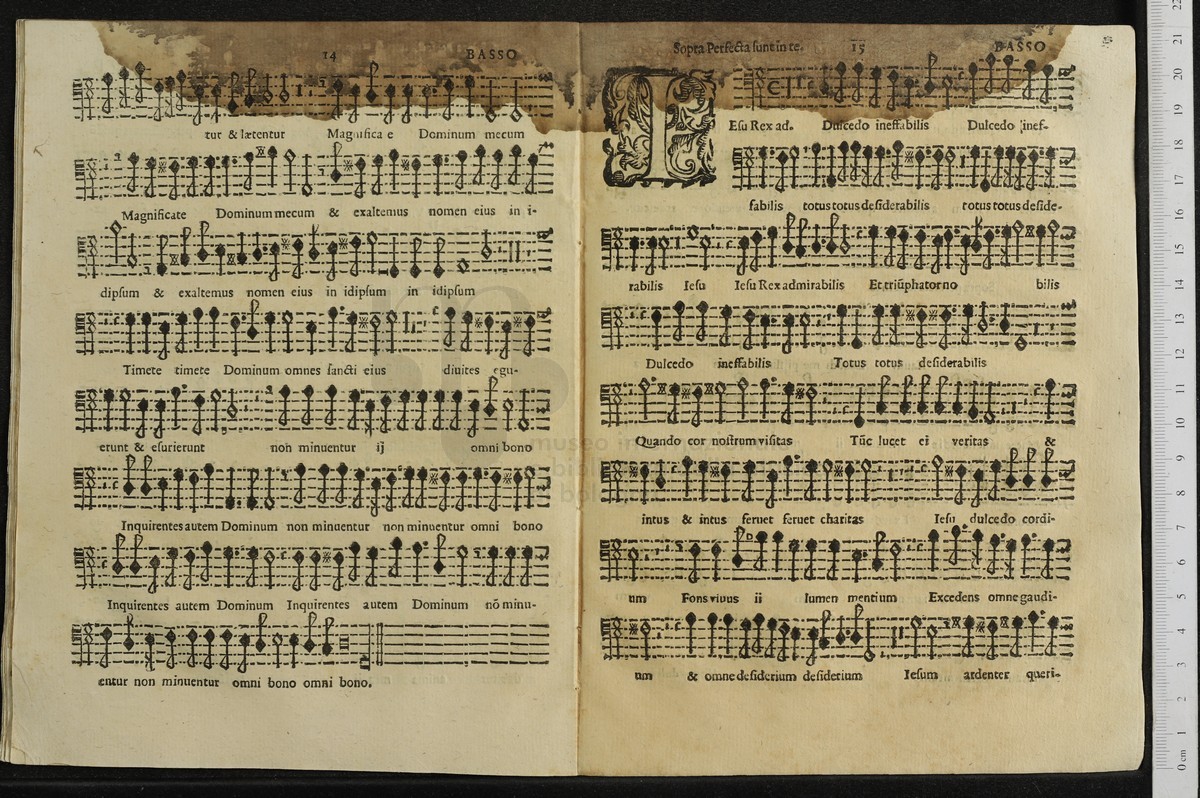 14 BASSO
tur & lætentur Magnifica e Dominum mecum
Magnificate Dominum mecum & exaltemus nomen eius in i-
dipsum & exaltemus nomen eius in idipsum in idipsum
Timete timete Dominum omnes sancti eius diuites egu-
erunt & esurierunt non minuentur ij omni bono
Inquirentes autem Dominum non minuentur non minuentur omni bono
Inquirentes autem Dominum Inquirentes autem Dominum nō minu-
entur non minuentur omni bono omni bono.
Sopra Perfecta sunt in te. 15 BASSO
I Esu Rex ad. Dulcedo ineffabilis Dulcedo inef-
fabilis totus totus desiderabilis totus totus deside-
rabilis Iesu Iesu Rex admirabilis Et triūphator no bilis
Dulcedo ineffabilis Totus totus desiderabilis
Quando cor nostrum visitas Tūc lucet ei veritas &
intus & intus feruet feruet charitas Iesu dulcedo cordi-
um Fons viuus ii lumen mentium Excedens omne gaudi-
um & omne desiderium desiderium Iesum ardenter queri-